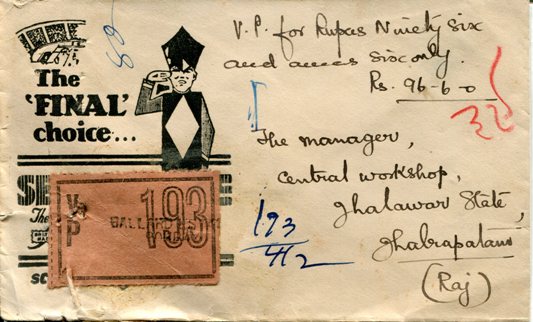 V.P. for Rupees Ninety six
and annas six only.
Rs. 96-6-0
The
'FINAL'
choice...
The manager,
Central workshop,
Jhalawar State,
Jhalrapatan
(Raj)
V
P
193
BALLARD
193
4/2
The